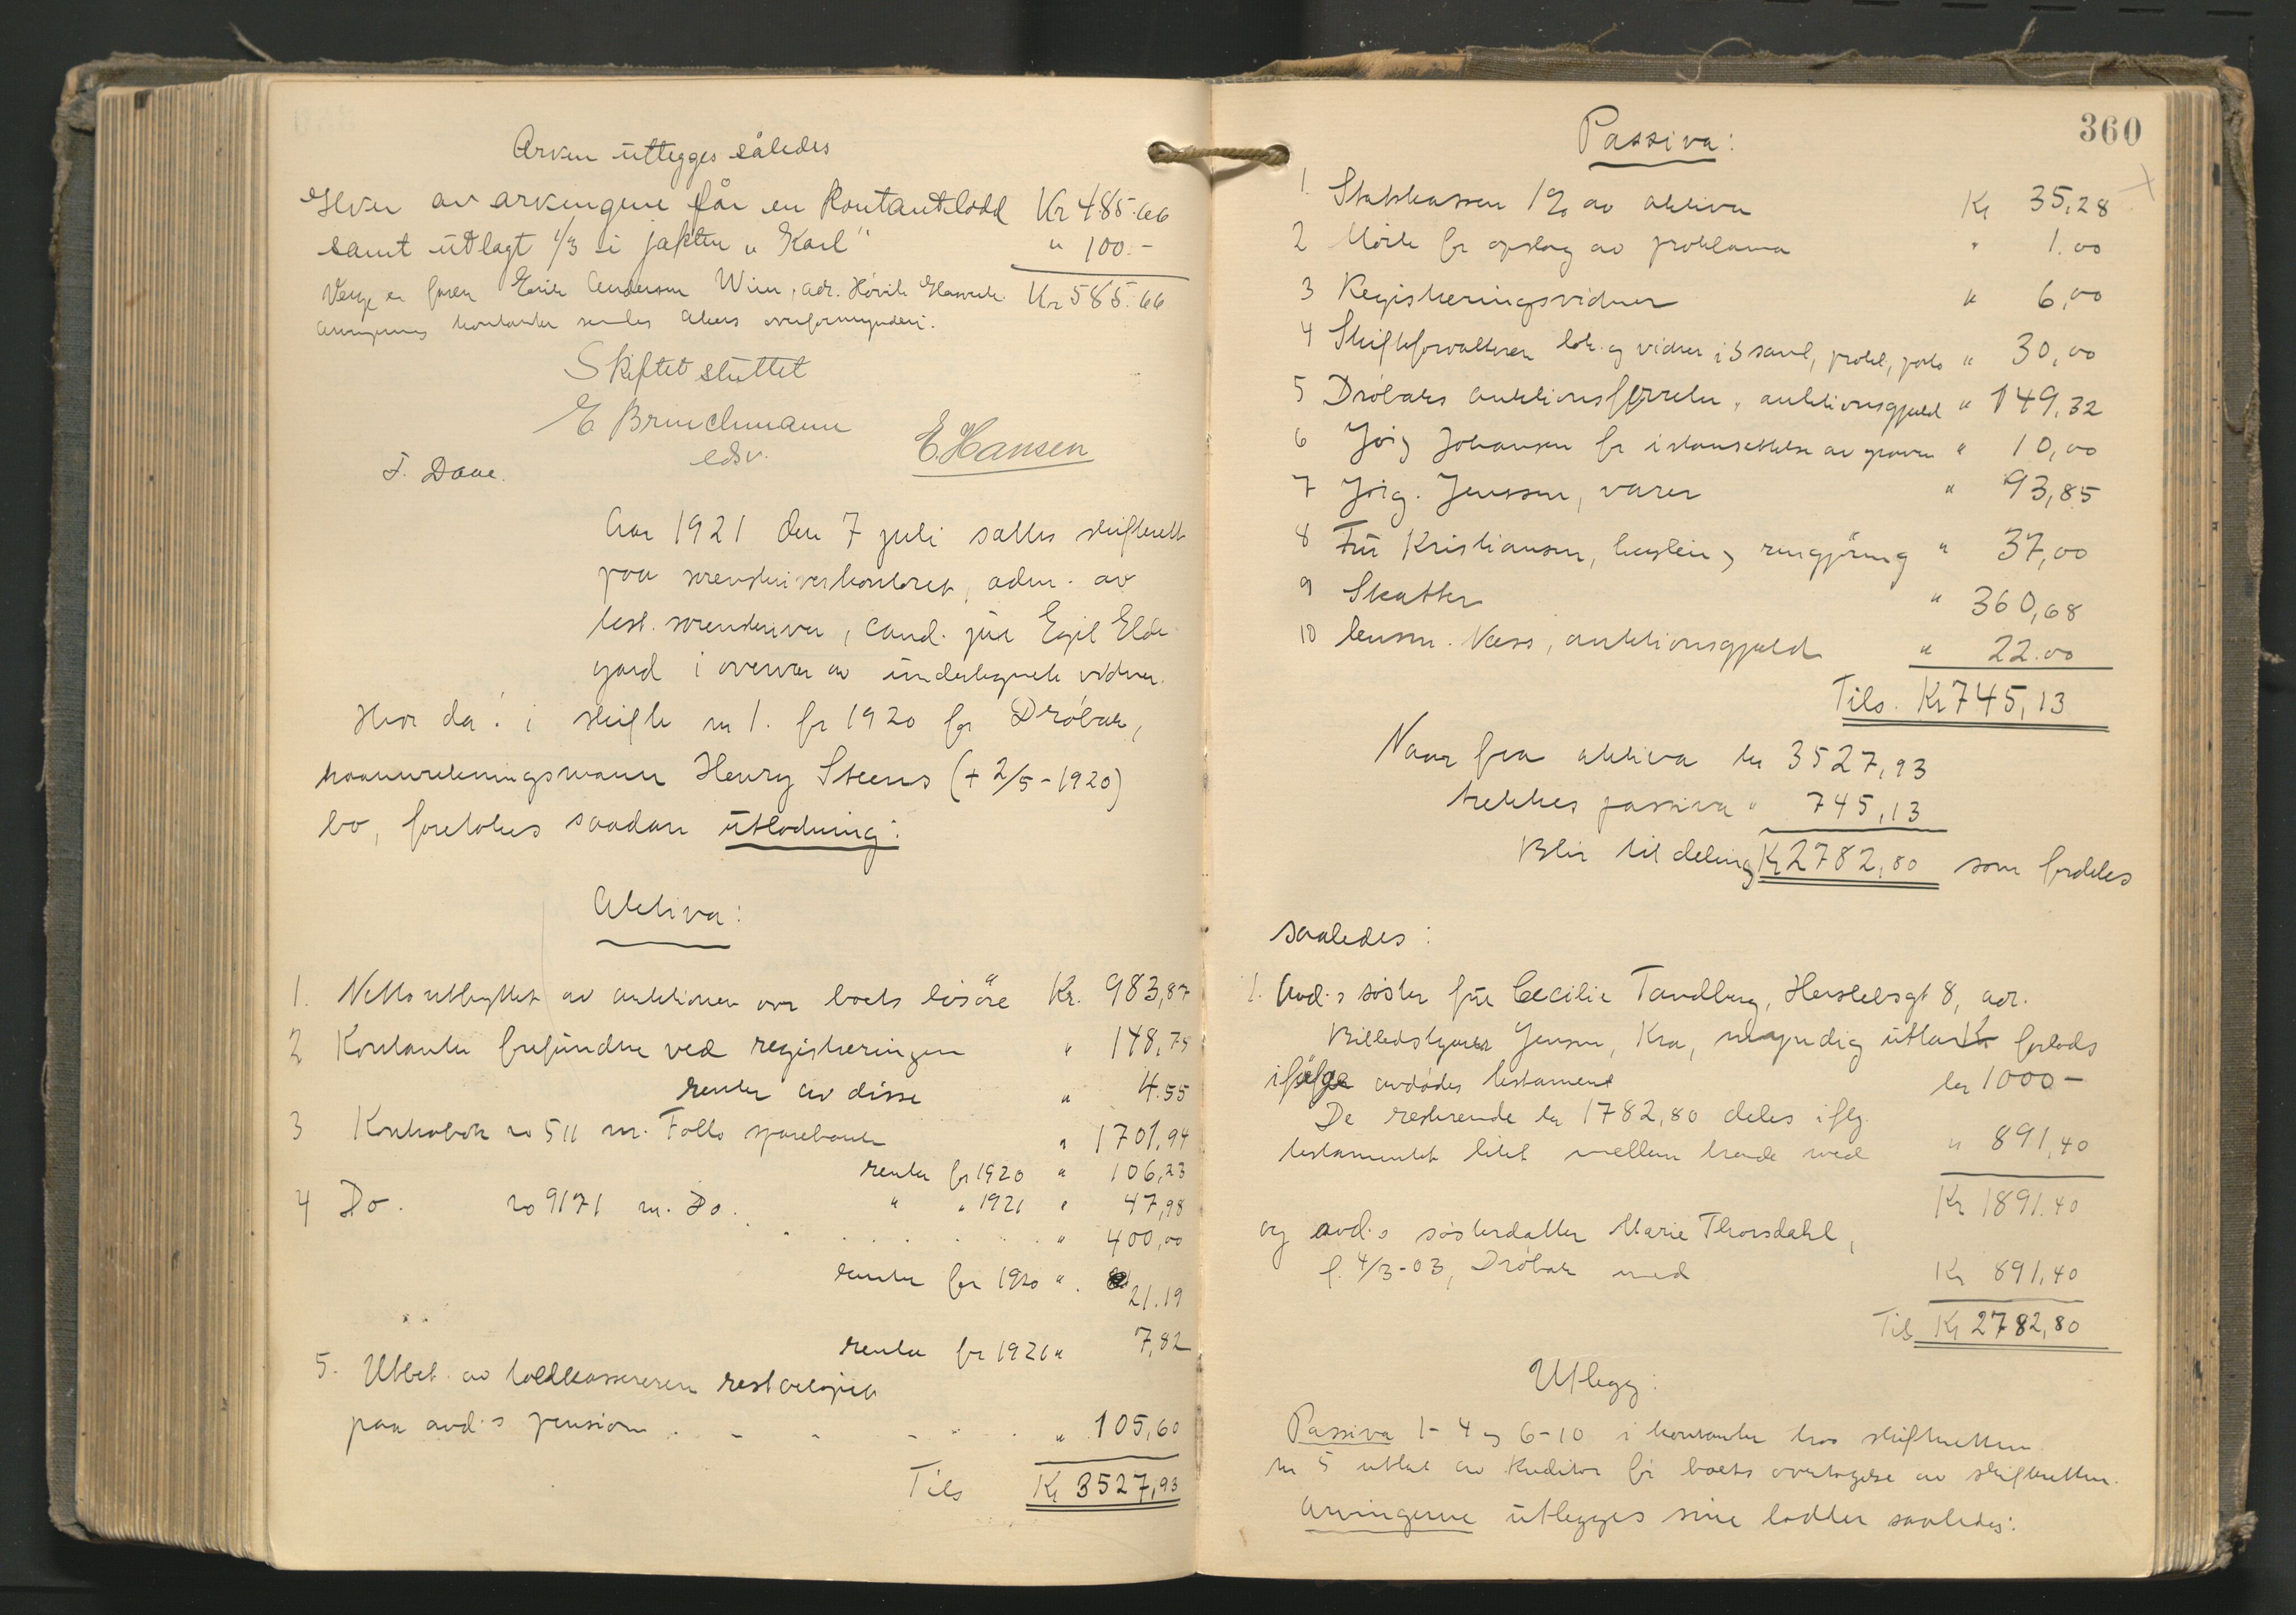 Arven utlegges således
Hver av arvingene får en kontantlodd Kr 485.66
samt utlagt 1/3 i jakten "Karl" " 100.-
Verge er faren Erik Andersen Wiur, adr. Høvik Kr 585.66
Arvingernes kontanter sendes Akers overformynderi.
Skiftet sluttet
E Bruchmann
edsv.
E. Hansen
T. Daae.
Aar 1921 den 7 juli sattes skifterett
paa sorenskriverkontoret, adm. av
best. sorenskriver, cand. jur Egil Elde-
gard i overvær av undertegnede vidner.
Hvor da: i skifte nr 1. for 1920 for Drøbak,
havneretningsmann Henry Steens (+ 2/5-1920)
bo, foretokes saadan utlodning:
Aktiva:
1. Netto utbyttet av auktionen over boets løsøre Kr. 983,87
2 Kontanter forefundne ved registreringen " 148,75
renter av disse " 4.55
3 Kontrabok no 511 m. Follo sparebank " 1701,94
renter for 1920 " 106,23
" " 1921 " 47,98
4 Do. no 9171 m. Do. " 400,00
renter for 1920 " 21.19
renter for 1921 " 7,82
5. Utbet. av toldkassereren restbeløpet
paa avd.s pension " 105,60
Tils Kr 3527,93
360
Passiva:
1. Statskassen 1% av aktiva Kr 35,28
2 Mørk for opslag av proklama " 1.00
3 Registreringsvidner " 6,00
4 Skifteforvalteren lok. og vidner i 3 saml, prokl, porto " 30,00
5 Drøbaks auktionsforretn, auktionsgjeld " 149,32
6 Jørg Johansen for istandsettelse av graven " 10,00
7 Jørg. Jenssen, varer " 93,85
8 Fru Kristiansen, husleie og rengjøring " 37,00
9 Skatter " 360,68
10 lensm. Næss, auktionsgjeld " 22.00
Tils. Kr 745,13
Naar fra aktiva kr 3527,93
trekkes passiva " 745,13
Blir til deling Kr 2782,80 som fordeles
saaledes:
1. Avd.s søster fru Cecilie Tandberg, Herslebsgt 8, adr.
Billedskjærer Jensen, Kra, myndig utlagt forlods
ifølge avdødes testament kr 1000-
De resterende kr 1782,80 deles iflg.
testamentet likt mellem hende med " 891,40
Kr 1891.40
og avd.s søsterdatter Marie Thorsdahl,
f. 4/3-03, Drøbak med Kr 891,40
Tils Kr 2782,80
Utlegg:
Passiva 1-4 og 6-10 i kontanter hos skifteretten.
nr 5 utlat av kreditor før boets overtagelse av skifteretten.
Arvingerne utlegges sine lodder saaledes: